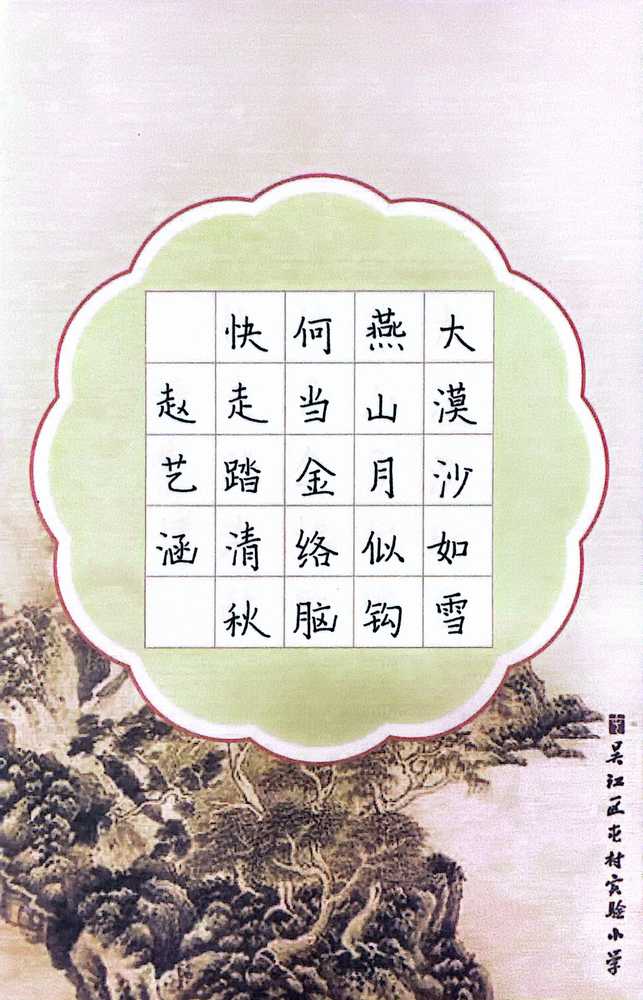 大漠沙如雪
燕山月似钩
何当金络脑
快走踏清秋
赵艺涵
吴江区屯村实验小学